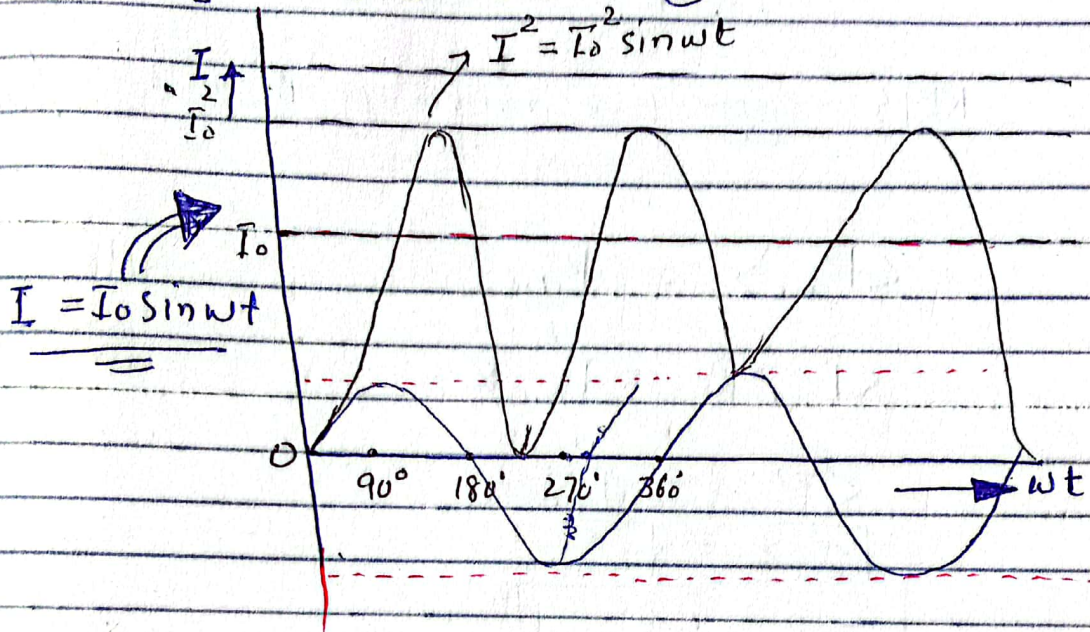 I² = I₀² sinωt
I
I₀²
I₀
I = I₀ sinωt
0
90° 180° 270° 360°
ωt